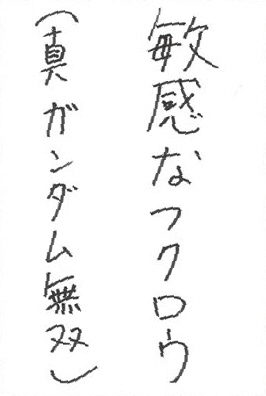 敏感なフクロウ
(真ガンダム無双)